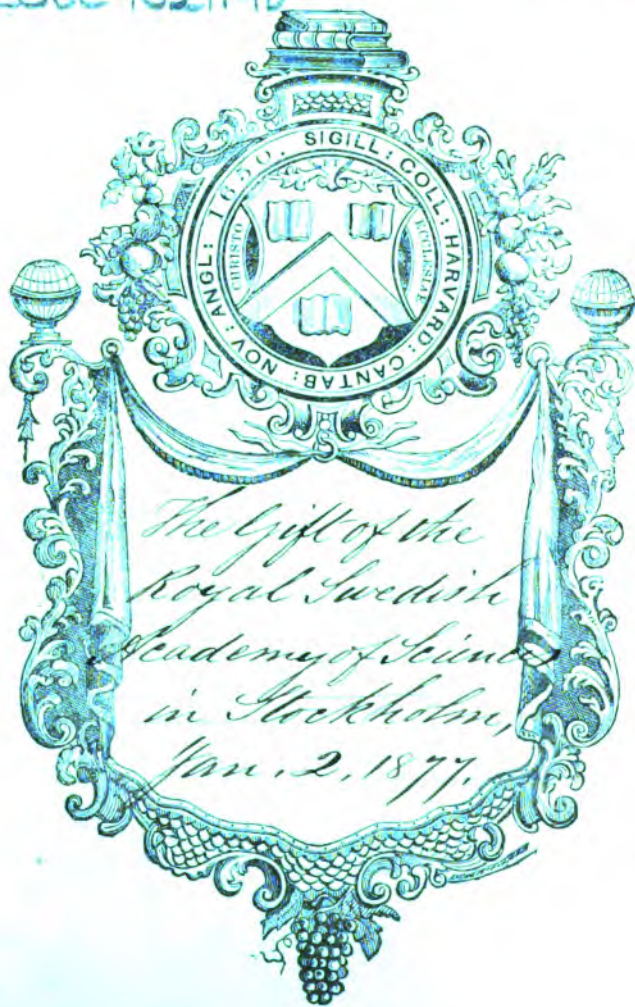 SIGILL: COLL: HARVARD: CANTAB: NOV: ANGL: 1650.
CHRISTO
ECCLESIAE
The Gift of the
Royal Swedish
Academy of Sciences
in Stockholm,
Jan. 2, 1877.